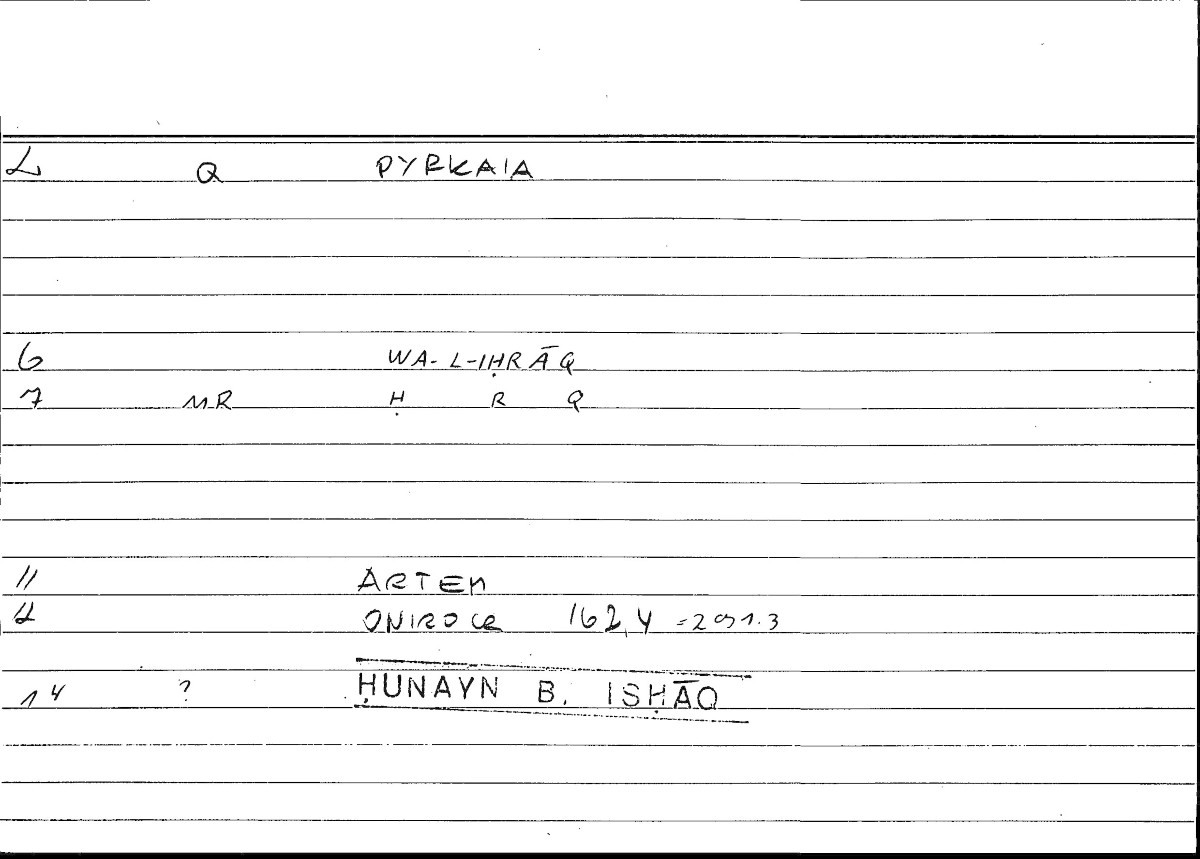 L Q PYRKAIA
6 WA-L-IḤRĀQ
7 MR Ḥ R Q
11 ARTEM
12 ONIROCR 162,4 = 291.3
14 ? ḤUNAYN B. ISḤĀQ